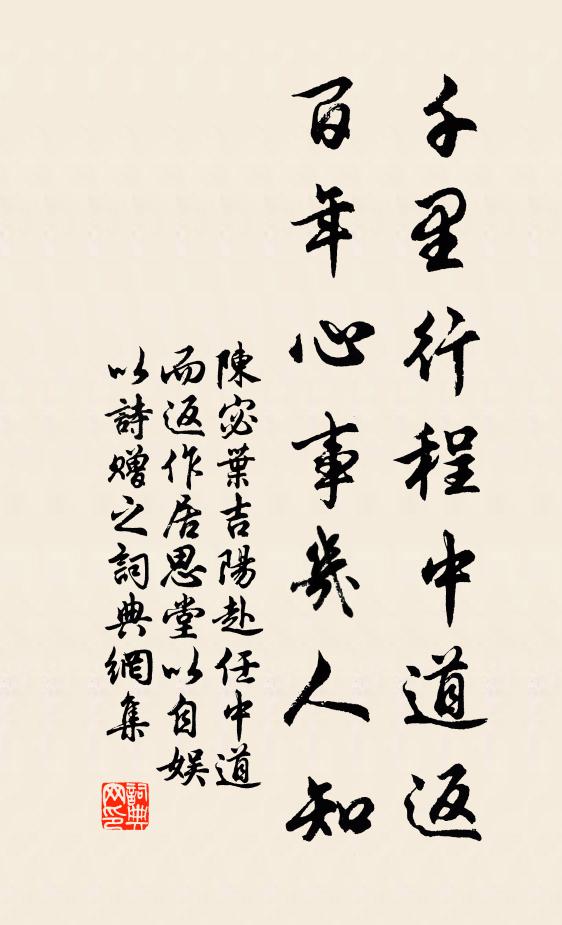 千里行程中道返
百年心事幾人知
陳宓葉吉陽赴任中道
而返作居思堂以自娛
以詩贈之詞典網集
詞典
网印